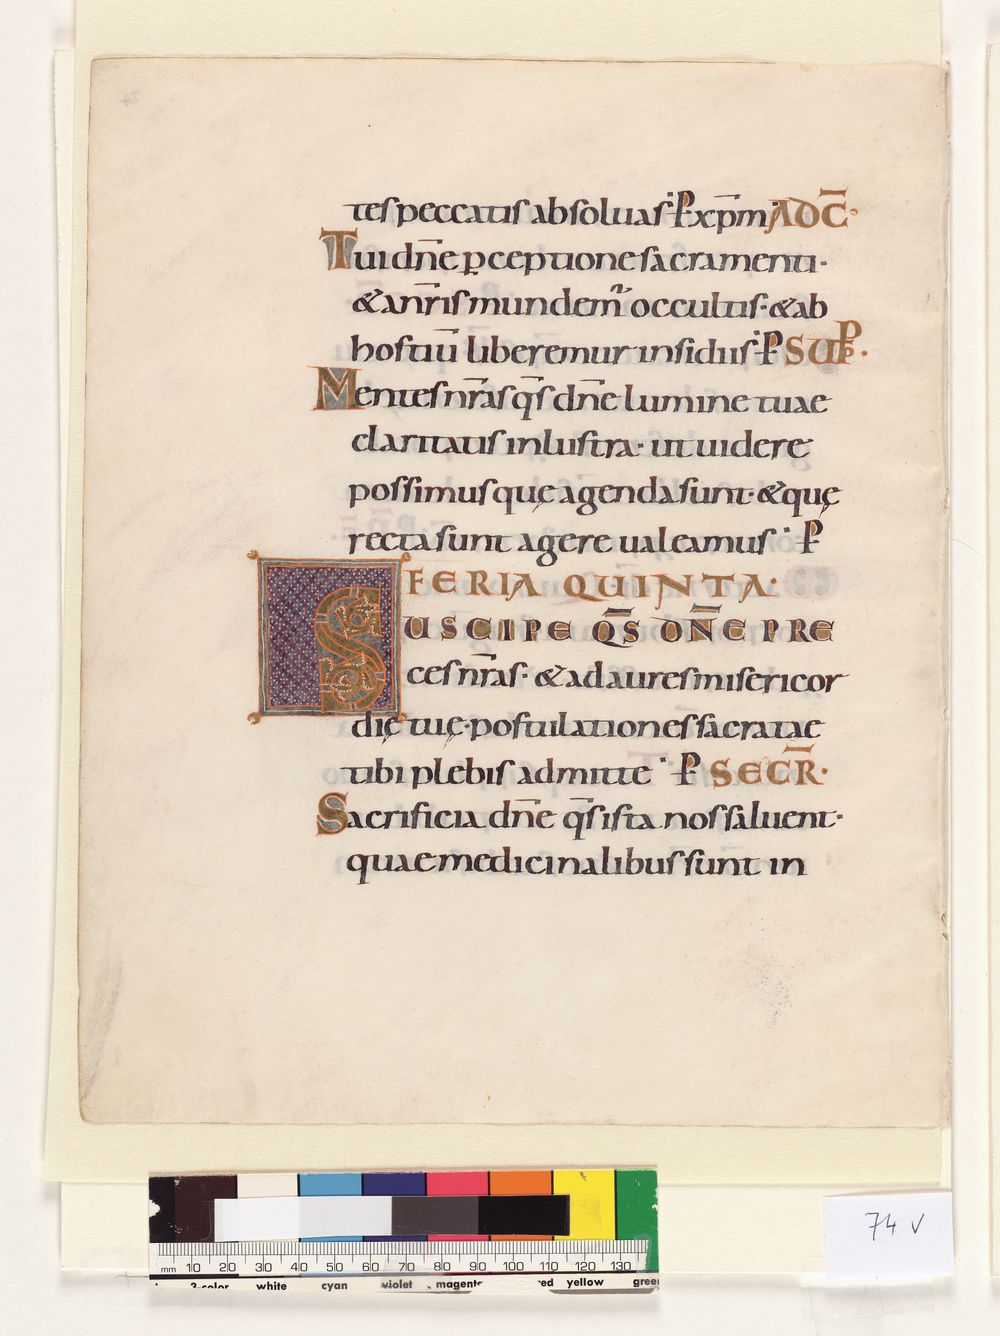 tes peccatis absoluas· P xp̄m AD C̄·
Tui dn̄e ꝑceptione sacramenti·
& a nr̄is mundemur occultis· & ab
hostiū liberemur insidiis· P SUPP·
Mentes nr̄as qs̄ dn̄e lumine tuae
claritatis inlustra· ut uidere
possimus quę agenda sunt· & quę
recta sunt agere ualeamus· P
FERIA QUINTA·
SUSCIPE QS̄ DN̄E PRE
ces nr̄as· & ad aures misericor
dię tuę· postulationes sacratae
tibi plebis admitte· P SECR̄·
Sacrificia dn̄e qs̄ ista nos saluent·
quae medicinalibus sunt in
74 v
mm 10 20 30 40 50 60 70 80 90 100 110 120 130
3-color white cyan violet magenta red yellow green